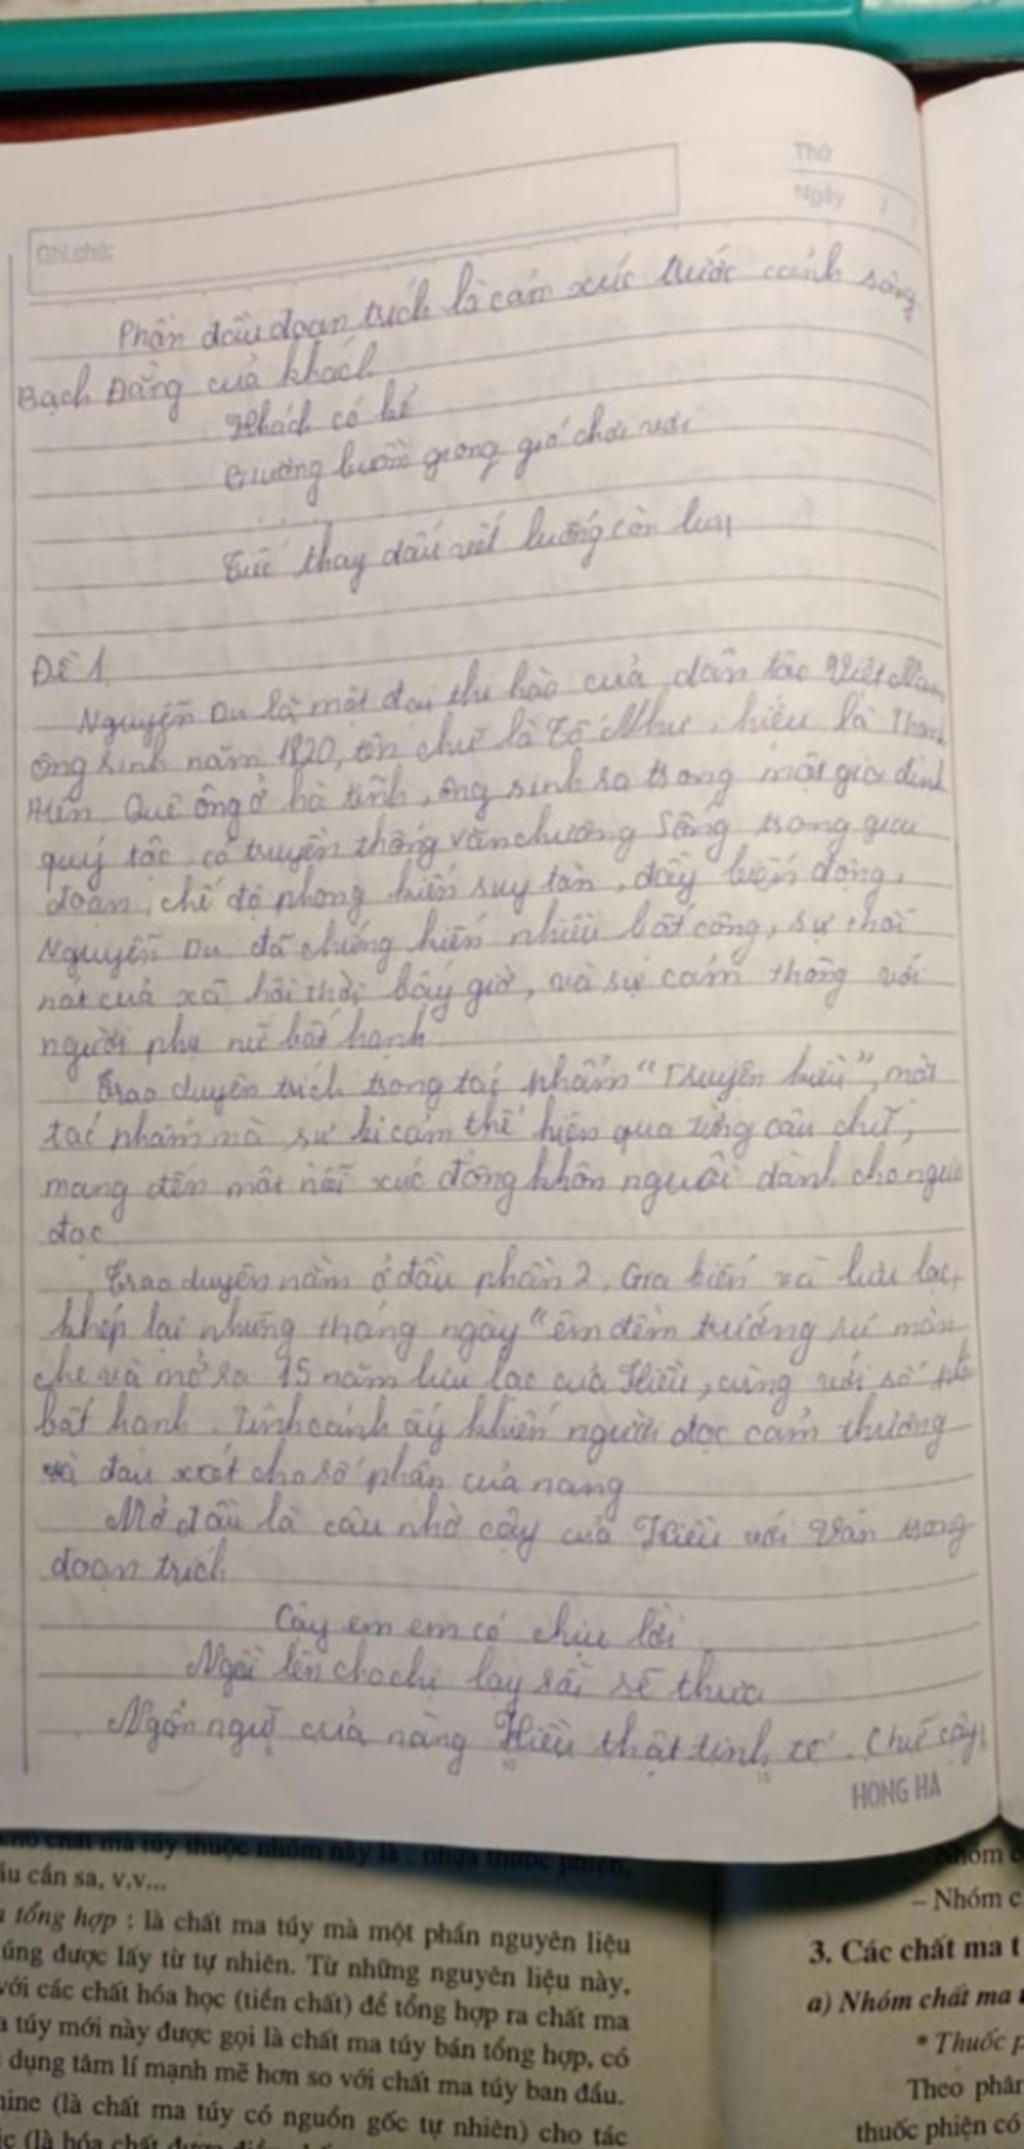 Thứ
Ngày / /
Ghi chú:
Phần đầu đoạn trích là cảm xúc trước cảnh sông
Bạch Đằng của khách
Khách có kẻ
Giương buồm giong gió chơi vơi
...
Tiếc thay dấu vết luống còn lưu
Đề 1
Nguyễn Du là một đại thi hào của dân tộc Việt Nam,
ông sinh năm 1820, tên chữ là Tố Như, hiệu là Thanh
Hiên. Quê ông ở hà tĩnh, ông sinh ra trong một gia đình
quý tộc, có truyền thống văn chương. Sống trong giai
đoạn, chế độ phong kiến suy tàn, đầy biến động,
Nguyễn Du đã chứng kiến nhiều bất công, sự thối
nát của xã hội thời bấy giờ, và sự cảm thông với
người phụ nữ bất hạnh
Trao duyên trích trong tác phẩm "Truyện kiều", một
tác phẩm mà sự bi cảm thể hiện qua từng câu chữ,
mang đến một nỗi xúc động khôn nguôi dành cho người
đọc
Trao duyên nằm ở đầu phần 2, Gia biến và lưu lạc,
khép lại những tháng ngày "êm đềm trướng rủ màn
che và mở ra 15 năm lưu lạc của Kiều, cùng với số
bất hạnh. Tình cảnh ấy khiến người đọc cảm thương
và đau xót cho số phận của nàng
Mở đầu là câu nhờ cậy của Kiều với Vân trong
đoạn trích
Cậy em em có chịu lời
Ngồi lên cho chị lạy rồi sẽ thưa
Ngôn ngữ của nàng Kiều thật tinh tế. Chữ cậy
HONG HA
cho chất ma túy thuộc nhóm này là : nhựa thuốc phiện,
cần sa, v.v...
tổng hợp : là chất ma túy mà một phần nguyên liệu
được lấy từ tự nhiên. Từ những nguyên liệu này,
với các chất hóa học (tiền chất) để tổng hợp ra chất ma
túy mới này được gọi là chất ma túy bán tổng hợp, có
dụng tâm lí mạnh mẽ hơn so với chất ma túy ban đầu.
(là chất ma túy có nguồn gốc tự nhiên) cho tác
(là hóa chất được
– Nhóm c
3. Các chất ma t
a) Nhóm chất ma
* Thuốc
Theo phân
thuốc phiện có